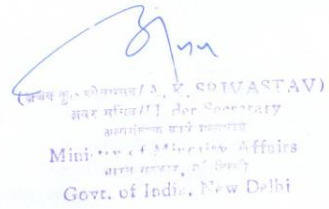 (अजय कु. श्रीवास्तव/A. K. SRIVASTAV)
अवर सचिव/U der Secretary
अल्पसंख्यक कार्य मंत्रालय
Ministry of Minority Affairs
भारत सरकार, नई दिल्ली
Govt. of India, New Delhi